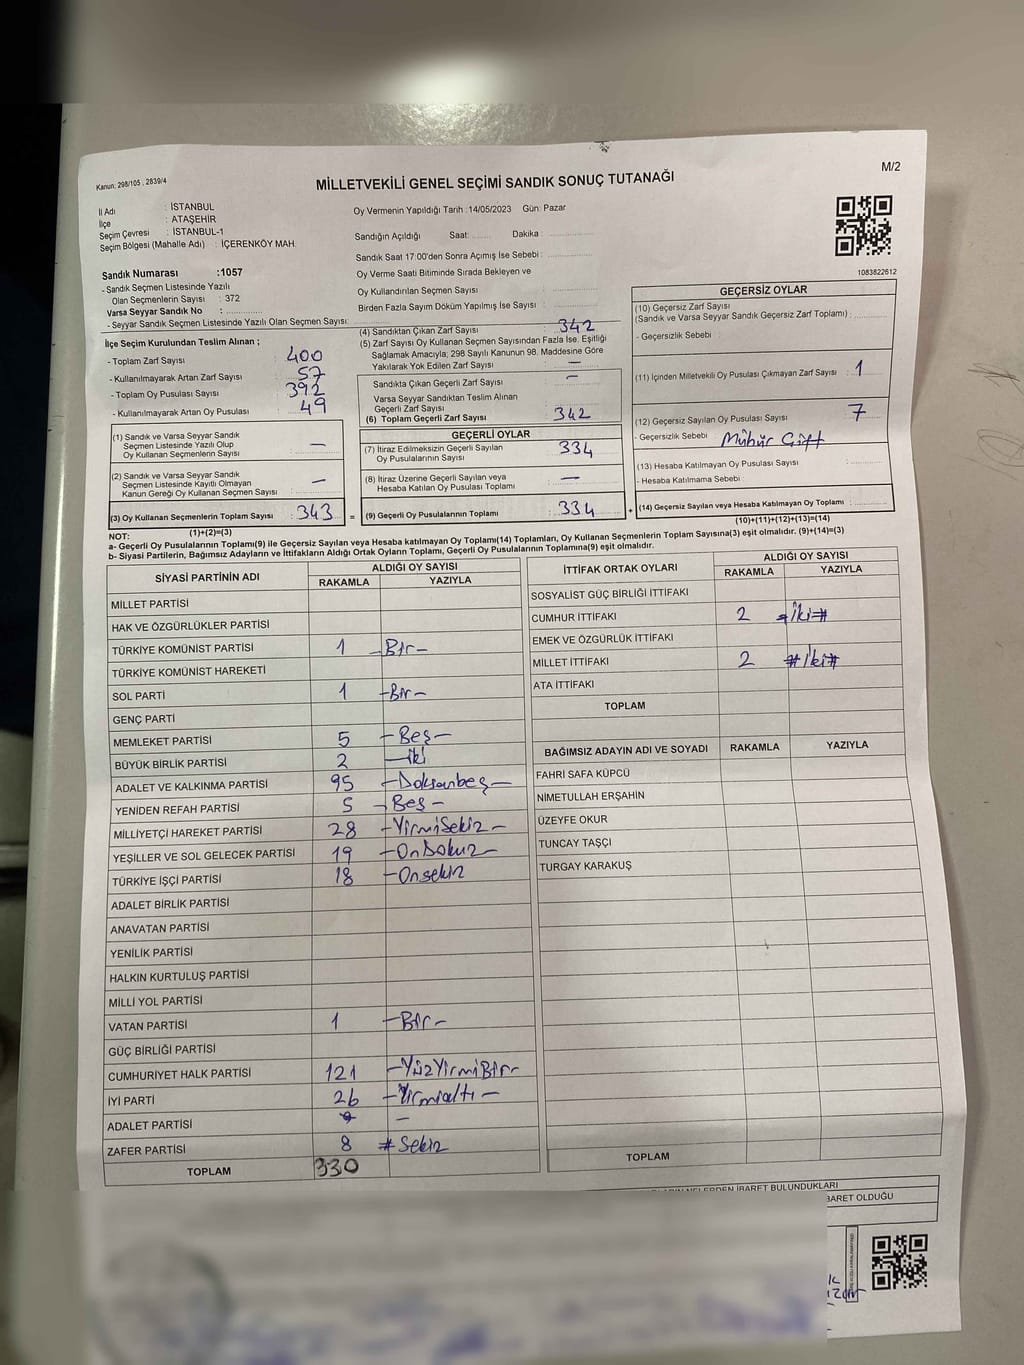 Kanun: 298/105 , 2839/4
MİLLETVEKİLİ GENEL SEÇİMİ SANDIK SONUÇ TUTANAĞI
M/2
İl Adı : İSTANBUL
İlçe : ATAŞEHİR
Seçim Çevresi : İSTANBUL-1
Seçim Bölgesi (Mahalle Adı) : İÇERENKÖY MAH.
Oy Vermenin Yapıldığı Tarih :14/05/2023 Gün: Pazar
Sandığın Açıldığı Saat:....... Dakika :..............
Sandık Saat 17:00'den Sonra Açımış İse Sebebi :..............
Oy Verme Saati Bitiminde Sırada Bekleyen ve
Oy Kullandırılan Seçmen Sayısı :..............
Birden Fazla Sayım Döküm Yapılmış İse Sayısı :..............
Sandık Numarası :1057
- Sandık Seçmen Listesinde Yazılı
Olan Seçmenlerin Sayısı : 372
Varsa Seyyar Sandık No :..............
- Seyyar Sandık Seçmen Listesinde Yazılı Olan Seçmen Sayısı:..............
1083822612
İlçe Seçim Kurulundan Teslim Alınan ;
- Toplam Zarf Sayısı : 400
- Kullanılmayarak Artan Zarf Sayısı : 57
- Toplam Oy Pusulası Sayısı : 392
- Kullanılmayarak Artan Oy Pusulası : 49
(1) Sandık ve Varsa Seyyar Sandık
Seçmen Listesinde Yazılı Olup
Oy Kullanan Seçmenlerin Sayısı : —
(2) Sandık ve Varsa Seyyar Sandık
Seçmen Listesinde Kayıtlı Olmayan
Kanun Gereği Oy Kullanan Seçmen Sayısı : —
(3) Oy Kullanan Seçmenlerin Toplam Sayısı : 343 =
(1)+(2)=(3)
(4) Sandıktan Çıkan Zarf Sayısı : 342
(5) Zarf Sayısı Oy Kullanan Seçmen Sayısından Fazla İse, Eşitliği
Sağlamak Amacıyla; 298 Sayılı Kanunun 98. Maddesine Göre
Yakılarak Yok Edilen Zarf Sayısı : —
Sandıkta Çıkan Geçerli Zarf Sayısı : —
Varsa Seyyar Sandıktan Teslim Alınan
Geçerli Zarf Sayısı :..............
(6) Toplam Geçerli Zarf Sayısı : 342
GEÇERLİ OYLAR
(7) İtiraz Edilmeksizin Geçerli Sayılan
Oy Pusulalarının Sayısı : 334
(8) İtiraz Üzerine Geçerli Sayılan veya
Hesaba Katılan Oy Pusulası Toplamı : —
(9) Geçerli Oy Pusulalarının Toplamı : 334 +
GEÇERSİZ OYLAR
(10) Geçersiz Zarf Sayısı
(Sandık ve Varsa Seyyar Sandık Geçersiz Zarf Toplamı) :..............
- Geçersizlik Sebebi :
(11) İçinden Milletvekili Oy Pusulası Çıkmayan Zarf Sayısı : 1
(12) Geçersiz Sayılan Oy Pusulası Sayısı : 7
- Geçersizlik Sebebi : Mühür Çift
(13) Hesaba Katılmayan Oy Pusulası Sayısı :..............
- Hesaba Katılmama Sebebi :
(14) Geçersiz Sayılan veya Hesaba Katılmayan Oy Toplamı :..............
(10)+(11)+(12)+(13)=(14)
NOT:
a- Geçerli Oy Pusulalarının Toplamı(9) ile Geçersiz Sayılan veya Hesaba katılmayan Oy Toplamı(14) Toplamları, Oy Kullanan Seçmenlerin Toplam Sayısına(3) eşit olmalıdır. (9)+(14)=(3)
b- Siyasi Partilerin, Bağımsız Adayların ve İttifakların Aldığı Ortak Oyların Toplamı, Geçerli Oy Pusulalarının Toplamına(9) eşit olmalıdır.
SİYASİ PARTİNİN ADI ALDIĞI OY SAYISI
RAKAMLA YAZIYLA
MİLLET PARTİSİ
HAK VE ÖZGÜRLÜKLER PARTİSİ
TÜRKİYE KOMÜNİST PARTİSİ 1 -Bir-
TÜRKİYE KOMÜNİST HAREKETİ
SOL PARTİ 1 -Bir-
GENÇ PARTİ
MEMLEKET PARTİSİ 5 -Beş-
BÜYÜK BİRLİK PARTİSİ 2 -iki
ADALET VE KALKINMA PARTİSİ 95 -Doksanbeş-
YENİDEN REFAH PARTİSİ 5 -Beş-
MİLLİYETÇİ HAREKET PARTİSİ 28 -YirmiSekiz-
YEŞİLLER VE SOL GELECEK PARTİSİ 19 -OnDokuz-
TÜRKİYE İŞÇİ PARTİSİ 18 -Onsekiz
ADALET BİRLİK PARTİSİ
ANAVATAN PARTİSİ
YENİLİK PARTİSİ
HALKIN KURTULUŞ PARTİSİ
MİLLİ YOL PARTİSİ
VATAN PARTİSİ 1 -Bir-
GÜÇ BİRLİĞİ PARTİSİ
CUMHURİYET HALK PARTİSİ 121 -YüzYirmiBir-
İYİ PARTİ 26 -Yirmialtı-
ADALET PARTİSİ -
ZAFER PARTİSİ 8 #Sekiz
TOPLAM 330
İTTİFAK ORTAK OYLARI ALDIĞI OY SAYISI
RAKAMLA YAZIYLA
SOSYALİST GÜÇ BİRLİĞİ İTTİFAKI
CUMHUR İTTİFAKI 2 #iki#
EMEK VE ÖZGÜRLÜK İTTİFAKI
MİLLET İTTİFAKI 2 #iki#
ATA İTTİFAKI
TOPLAM
BAĞIMSIZ ADAYIN ADI VE SOYADI RAKAMLA YAZIYLA
FAHRİ SAFA KÜPCÜ
NİMETULLAH ERŞAHİN
ÜZEYFE OKUR
TUNCAY TAŞÇI
TURGAY KARAKUŞ
TOPLAM
NELERDEN İBARET BULUNDUKLARI
BARET OLDUĞU